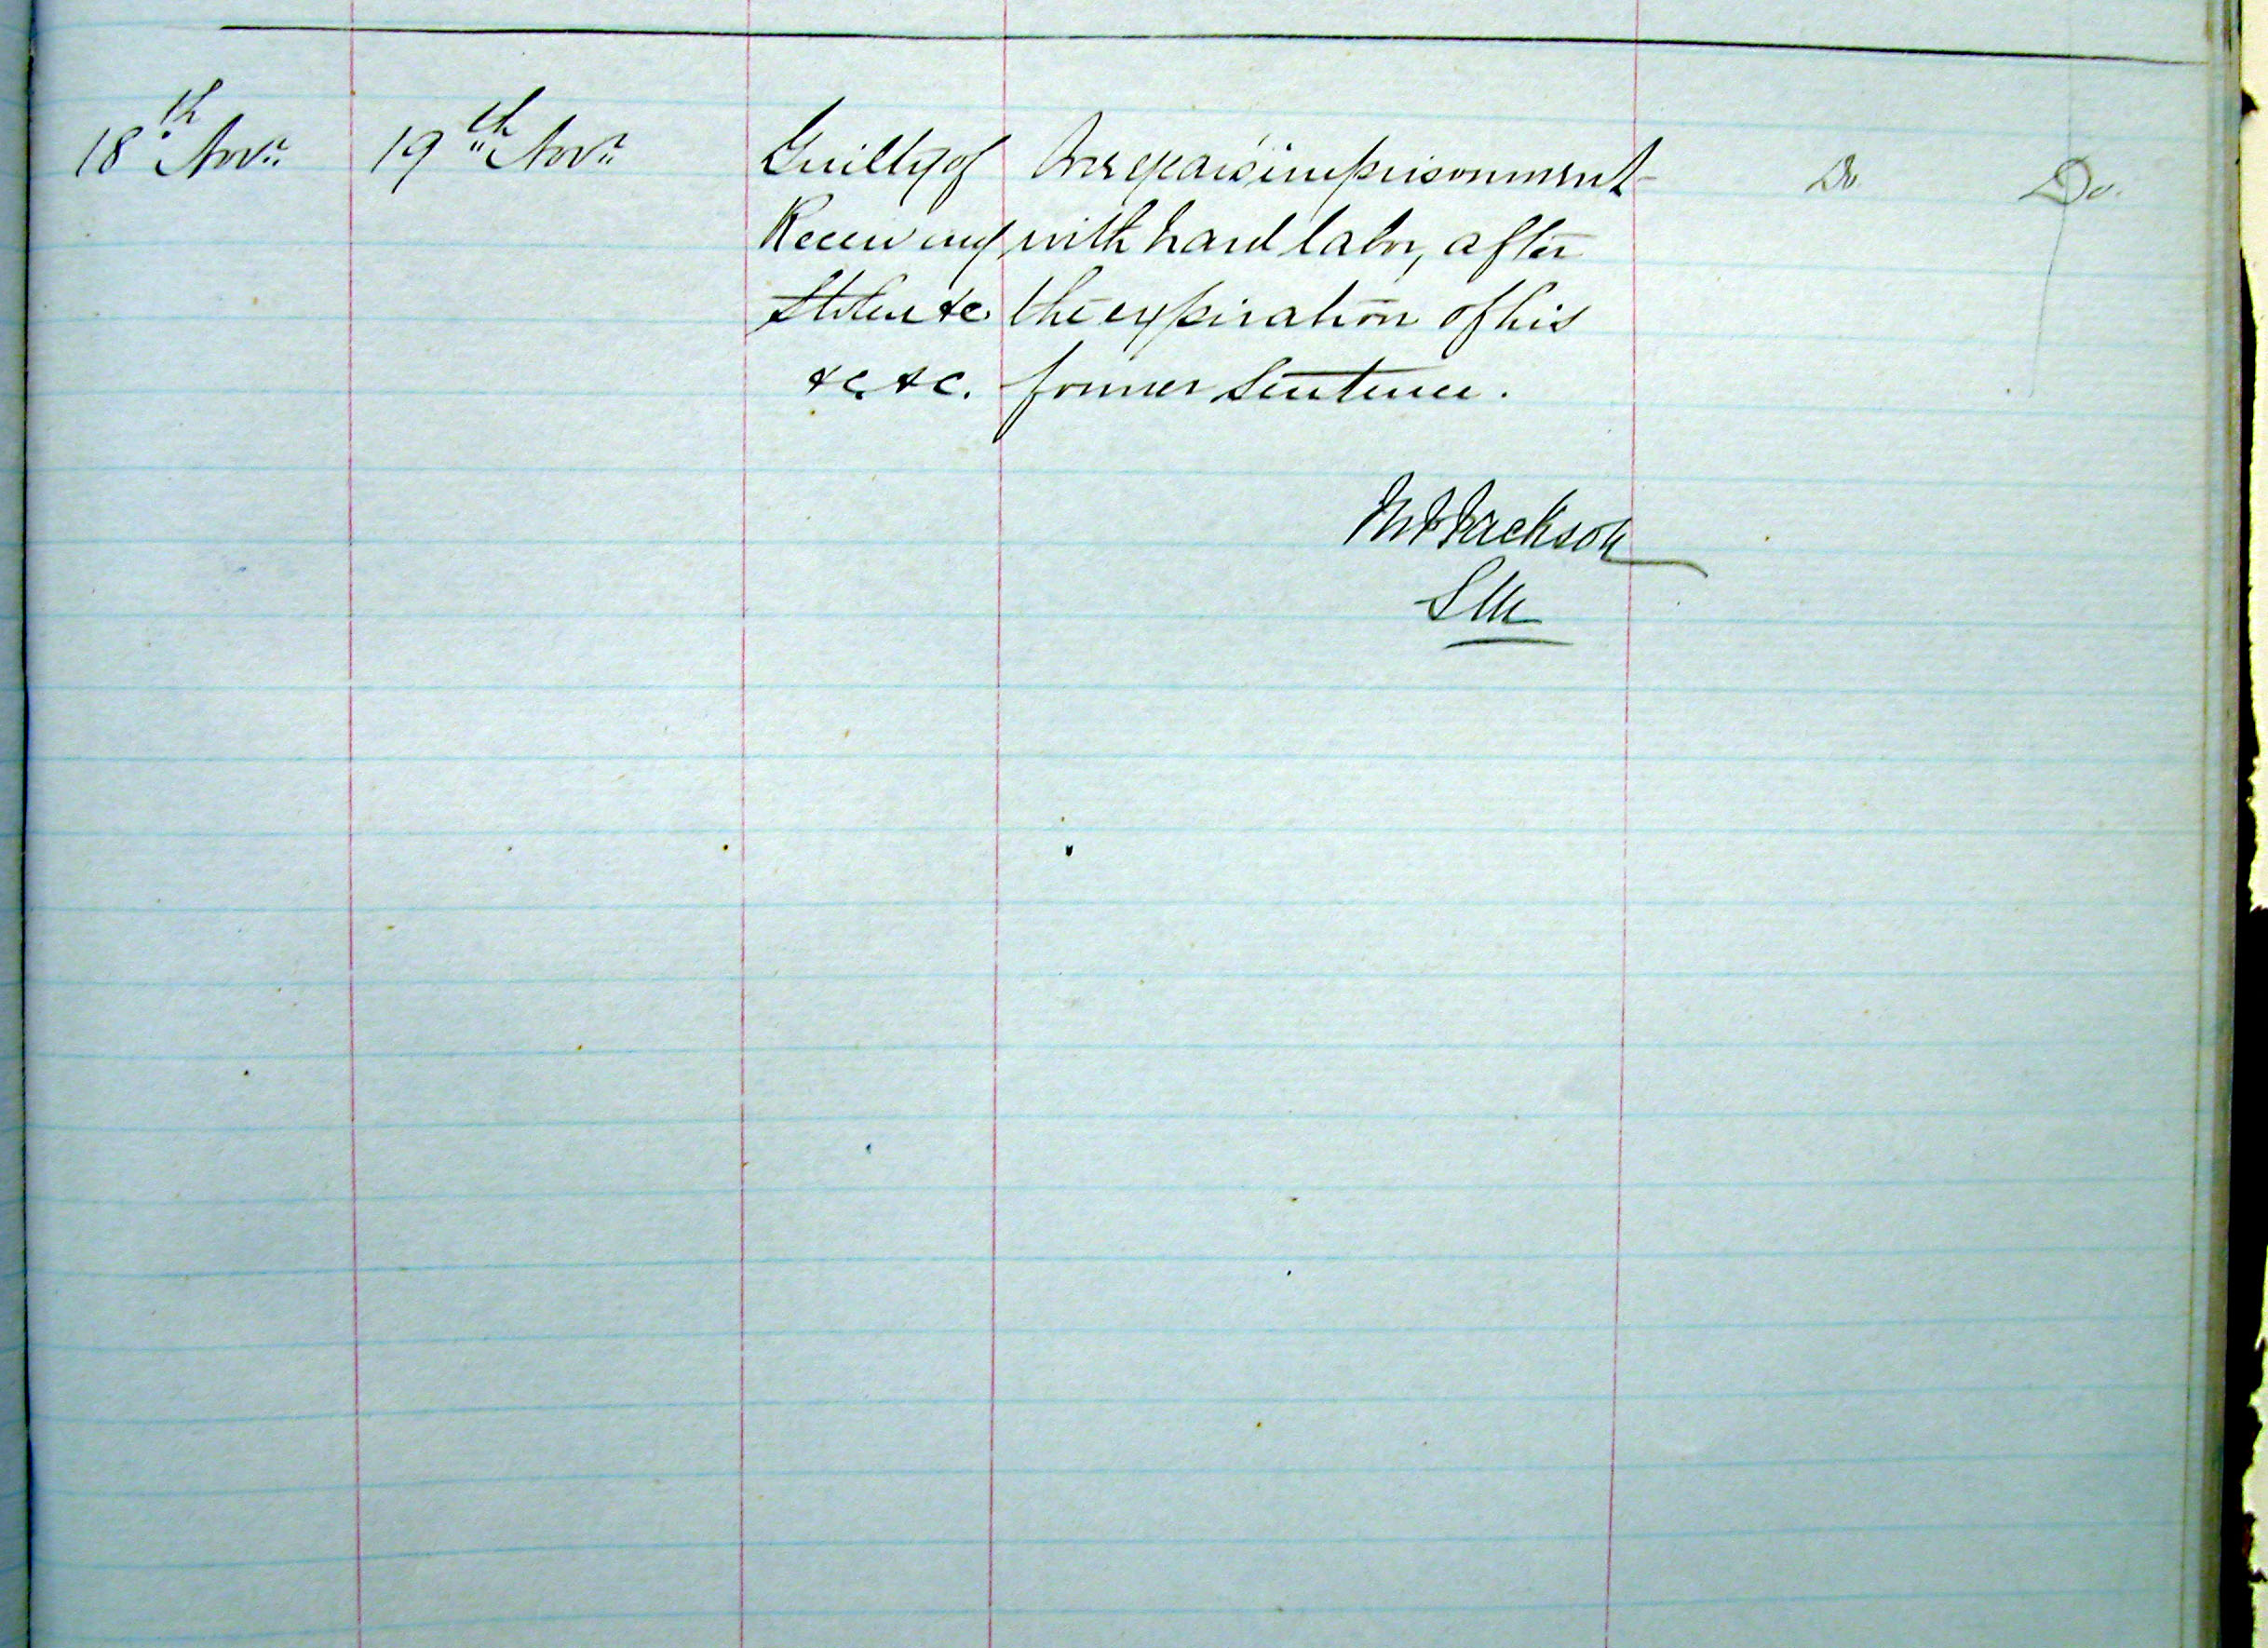 18th Novr. 19th Novr. Guilty of One year's imprisonment Do. Do.
Receiving with hard labor, after
Stolen &c. the expiration of his
&c. &c. former sentence.
Jackson
SM